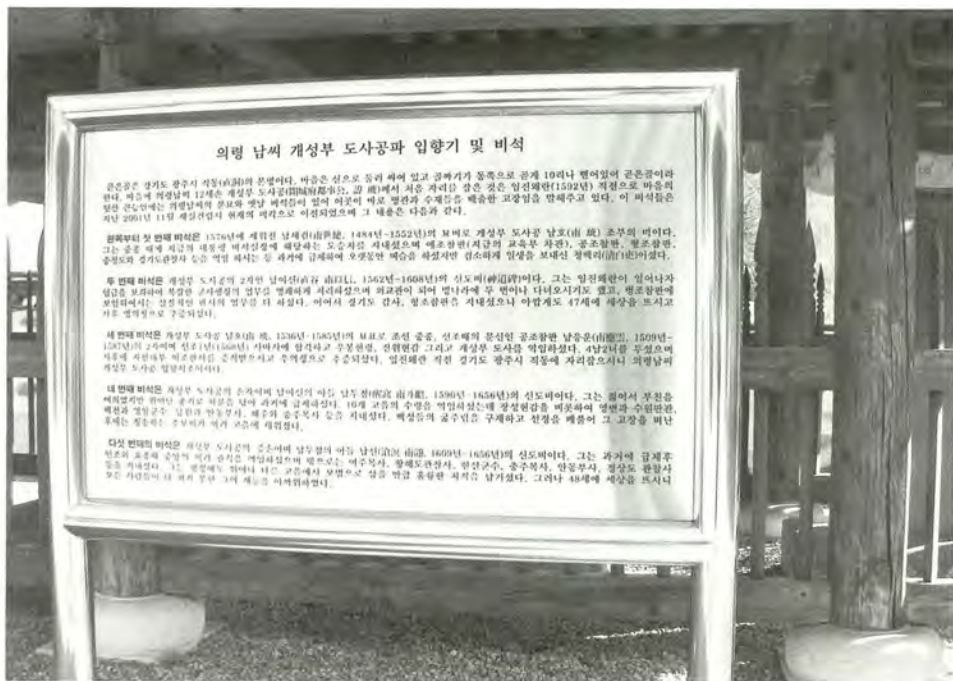 의령 남씨 개성부 도사공파 입향기 및 비석
곧은골은 경기도 광주시 직동(直洞)의 본명이다. 마을은 산으로 둘러 싸여 있고 골짜기가 동쪽으로 곧게 10리나 뻗어있어 곧은골이라
한다. 마을에 의령남씨 12세손 개성부 도사공(開城府都事公, 諱 )에서 처음 자리를 잡은 것은 임진왜란(1592년) 직전으로 마을의
뒷산 큰능안에는 의령남씨의 분묘와 옛날 비석들이 있어 이곳이 바로 명관과 수재들을 배출한 고장임을 말해주고 있다. 이 비석들은
지난 2001년 11월 재실건립시 현재의 비각으로 이전되었으며 그 내용은 다음과 같다.
왼쪽부터 첫 번째 비석은 1576년에 세워진 남세건(南世健, 1484년~1552년)의 묘비로 개성부 도사공 남호(南 ) 조부의 비이다.
그는 중종 때에 지금의 대통령 비서실장에 해당하는 도승지를 지내셨으며 예조참판(지금의 교육부 차관), 공조참판, 형조참판,
충청도와 경기도관찰사 등을 역임 하시는 등 과거에 급제하여 오랫동안 벼슬을 하셨지만 검소하게 일생을 보내신 청백리(淸白吏)이셨다.
두 번째 비석은 개성부 도사공의 2자인 남이신(直谷 南以信, 1562년~1608년)의 신도비(神道碑)이다. 그는 임진왜란이 일어나자
임금을 보좌하여 복잡한 군사행정의 업무를 명쾌하게 처리하셨으며 외교관이 되어 명나라에 두 번이나 다녀오시기도 했고, 병조참판에
보임되어서는 실질적인 판서의 업무를 다 하셨다. 이어서 경기도 감사, 형조참판을 지내셨으나 아깝게도 47세에 세상을 뜨시고
사후 영의정으로 추증되셨다.
세 번째 비석은 개성부 도사공 남호(南 , 1536년~1585년)의 묘표로 조선 중종, 선조때의 문신인 공조참판 남응운(南應雲, 1509년~
1587년)의 2자이며 선조1년(1568년) 사마시에 합격하고 우봉현령, 진위현감 그리고 개성부 도사를 역임하셨다. 4남2녀를 두셨으며
사후에 자헌대부 이조판서를 증직받으시고 추의정으로 추증되셨다. 임진왜란 직전 경기도 광주시 직동에 자리잡으시니 의령남씨
개성부 도사공 입향시조이시다.
네 번째 비석은 개성부 도사공의 손자이며 남이신의 아들 남두첨(南斗瞻, 1590년~1656년)의 신도비이다. 그는 젊어서 부친을
여의었지만 뛰어난 용기로 학문을 닦아 과거에 급제하셨다. 16개 고을의 수령을 역임하셨는데 장성현감을 비롯하여 영변과 수원판관,
배천과 영암군수, 남원과 안동부사, 해주와 충주목사 등을 지내셨다. 백성들의 굶주림을 구제하고 선정을 베풀어 그 고장을 떠난
후에는 칭송하는 송덕비가 여러 고을에 세워졌다.
다섯 번째의 비석은 개성부 도사공의 증손이며 남두첨의 아들 남선(南 , 1609년~1656년)의 신도비이다. 그는 과거에 급제후
인조와 효종때 중앙의 여러 관직을 역임하셨으며 밖으로는 여주목사, 황해도관찰사, 한산군수, 충주목사, 안동부사, 경상도 관찰사
등을 지내셨다. 그는 행정에도 뛰어나 다른 고을에서 모범으로 삼을 만큼 훌륭한 치적을 남기셨다. 그러나 48세에 세상을 뜨시니
모든 사람들이 다 펴지 못한 그의 재능을 아까워하였다.